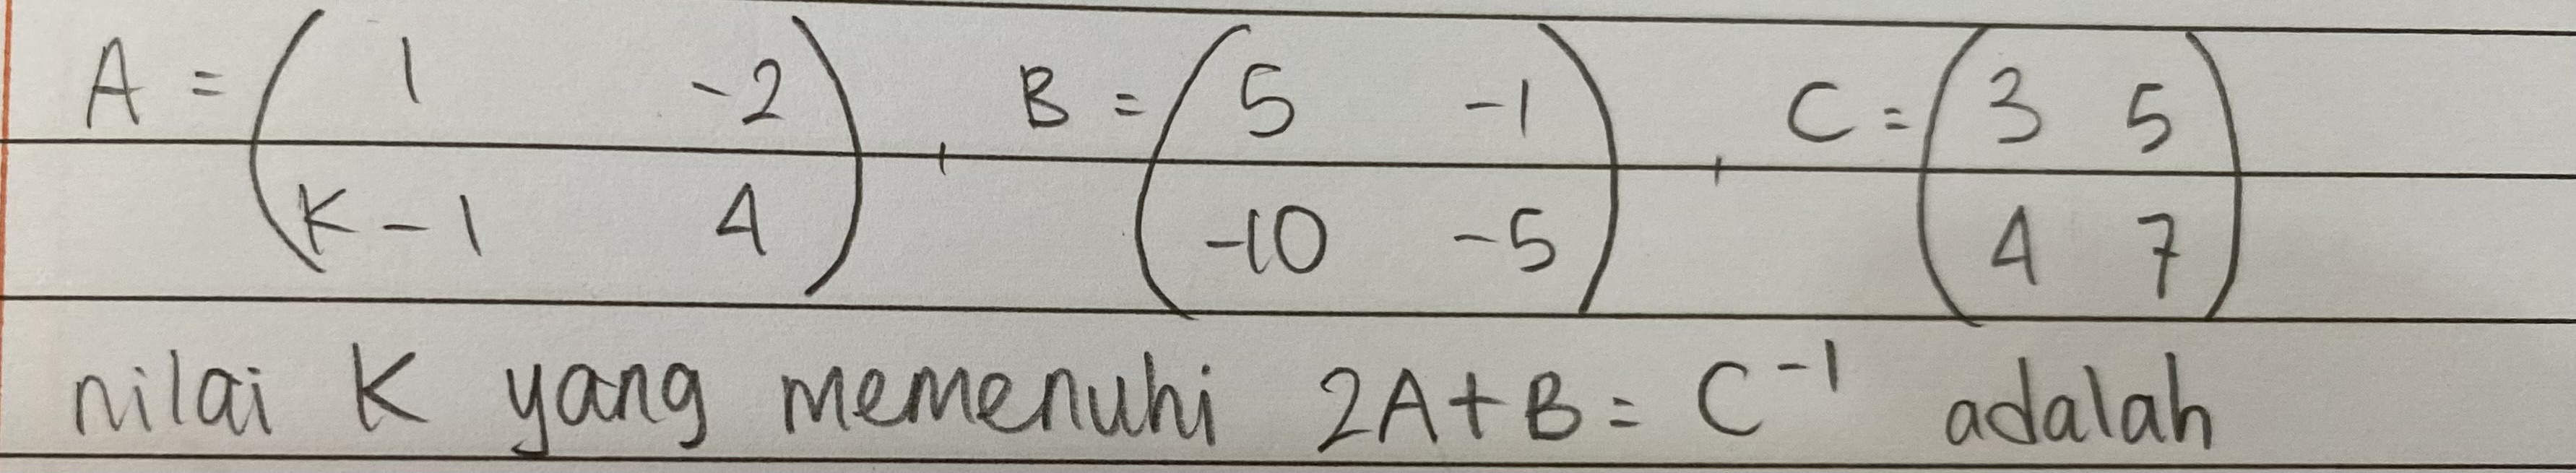 A = ( 1 -2 ) , B = ( 5 -1 ) , C = ( 3 5 )
( K - 1 4 ) ( -10 -5 ) ( 4 7 )
nilai K yang memenuhi 2A + B = C⁻¹ adalah